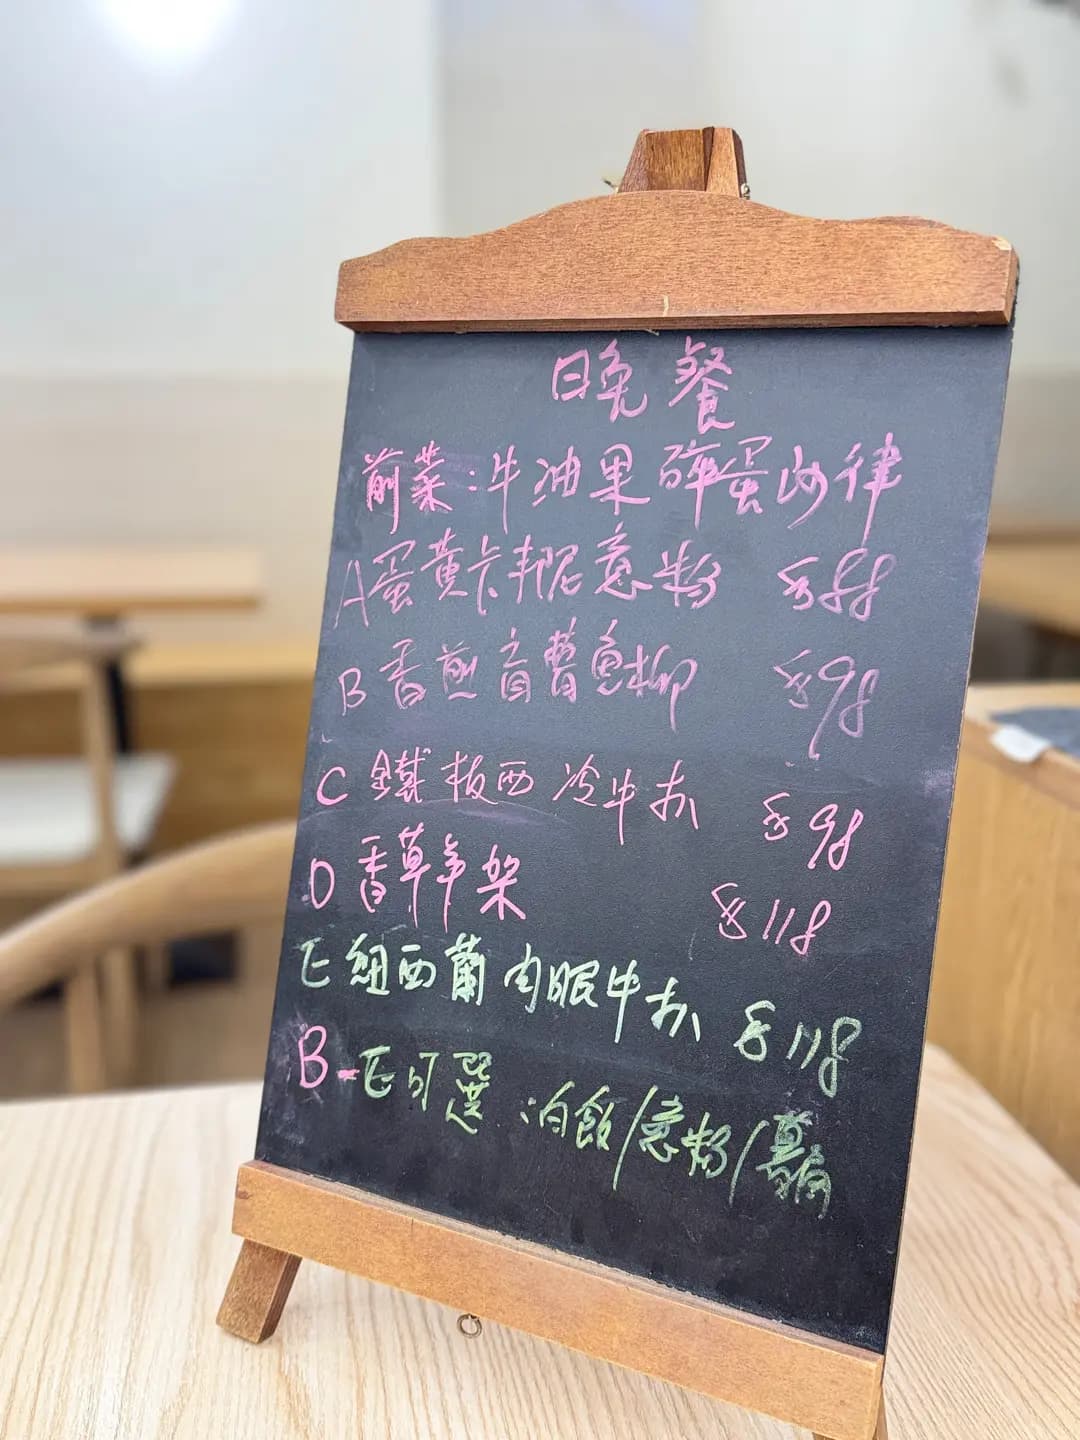 晚餐
前菜:牛油果碎蛋沙律
A 蛋黃卡邦尼意粉 $88
B 香煎盲曹魚柳 $98
C 鐵板西冷牛扒 $98
D 香草羊架 $118
E 紐西蘭肉眼牛扒 $118
B-E可選:白飯/意粉/薯